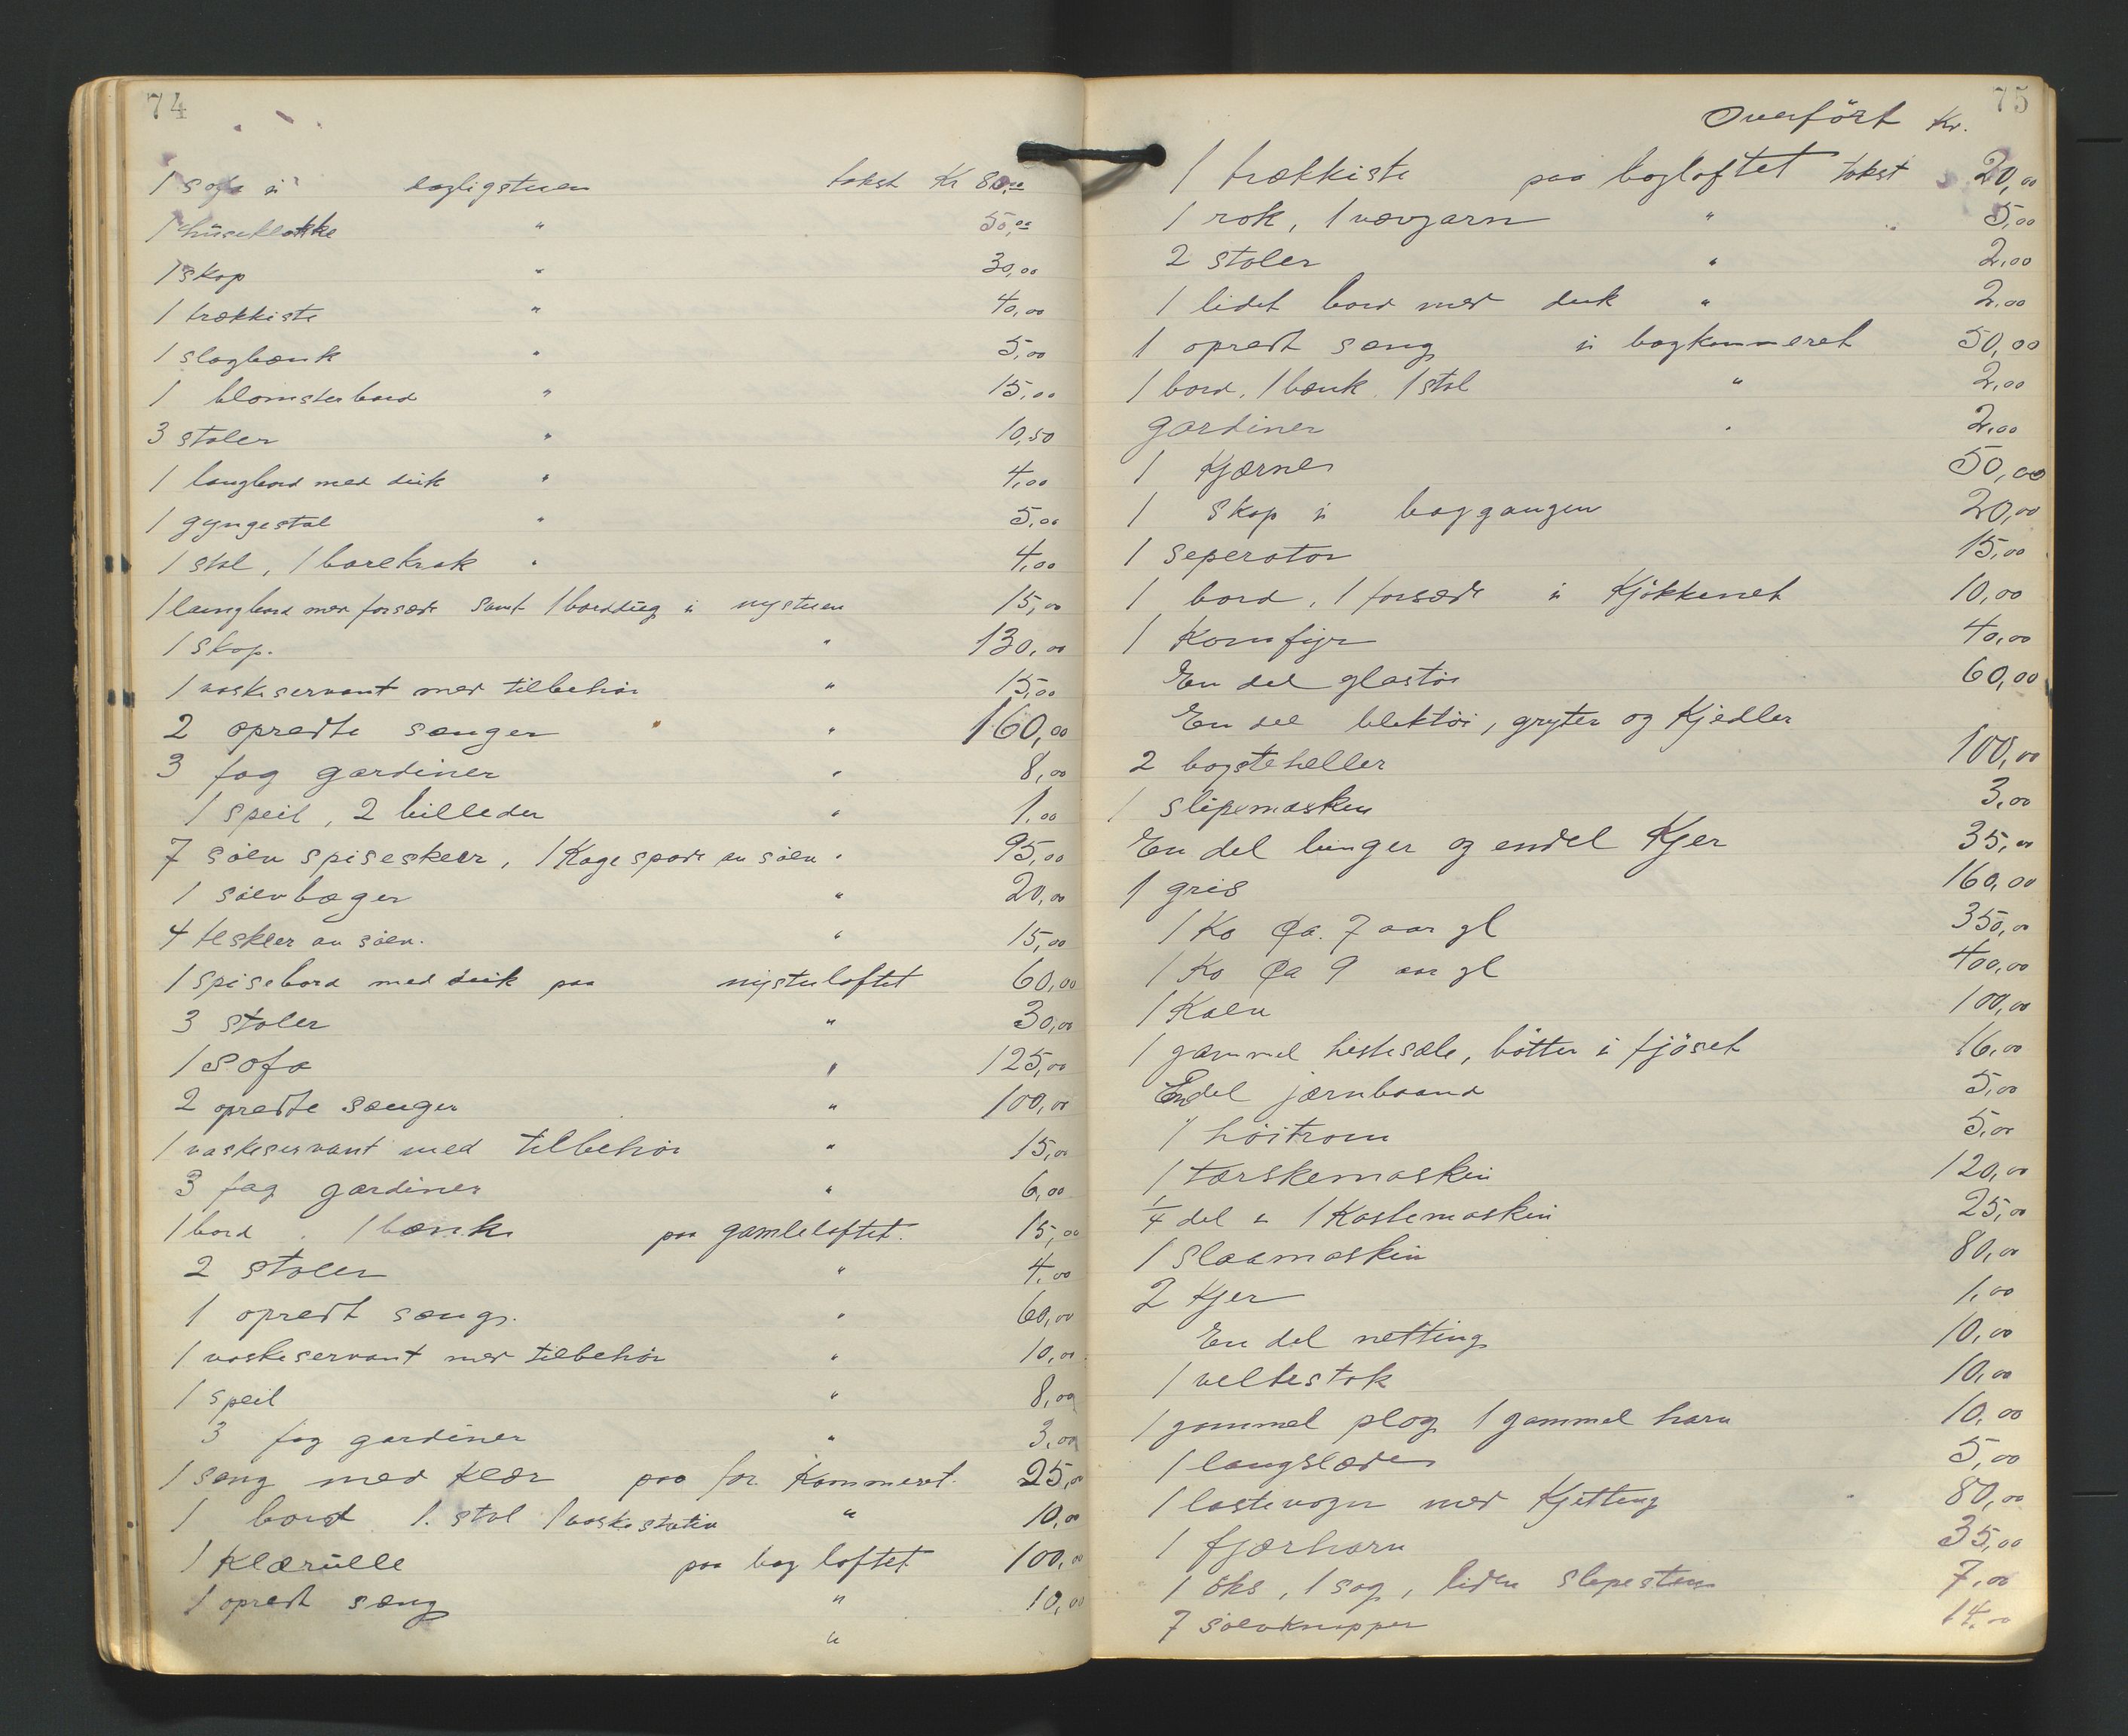 74
1 sofa i dagligstuen takst Kr 80,00
1 huseklokke " 50,00
1 skap " 30,00
1 trækkiste " 40,00
1 slagbænk " 5,00
1 blomsterbord " 15,00
3 stoler " 10,50
1 langbord med duk " 4,00
1 gyngestol " 5,00
1 stol, 1 barekrak " 4,00
1 langbord med forsæde samt 1 borddug i nystuen 15,00
1 skap. " 130,00
1 vaskeservant med tilbehør " 15,00
2 opredte senger " 160,00
3 fag gardiner " 8,00
1 speil, 2 billeder " 1,00
7 sølv spiseskeer, 1 Kagespade av sølv " 95,00
1 sølvbæger " 20,00
4 teskeer av sølv. " 15,00
1 spisebord med duk paa nystuloftet 60,00
3 stoler " 30,00
1 sofa " 125,00
2 opredte senger " 100,00
1 vaskeservant med tilbehør " 15,00
3 fag gardiner " 6,00
1 bord . 1 bænk paa gamleloftet. 15,00
2 stoler " 4,00
1 opredt seng. " 60,00
1 vaskeservant med tilbehør " 10,00
1 speil " 8,00
3 fag gardiner " 3,00
1 seng med klær paa for. Kammeret. 25,00
1 bord 1. stol 1 vaskestativ " 10,00
1 Klærulle paa bag loftet 100,00
1 opredt seng " 10,00
"
75
Overført Kr.
1 trækkiste paa bagloftet takst 20,00
1 rok, 1 vævgarn " 5,00
2 stoler " 2,00
1 lidet bord med duk " 2,00
1 opredt seng i bagkammeret 50,00
1 bord, 1 bænk, 1 stol " 2,00
gardiner " 2,00
1 Kjærne 50,00
1 Skap i baggangen 20,00
1 seperator 15,00
1 bord, 1 forsæde i Kjøkkenet 10,00
1 Komfyr 40,00
En del glastøi 60,00
En del blektøi, gryter og Kjedler
2 bagsteheller 100,00
1 slipemaskin 3,00
En del binger og endel Kjer 35,00
1 gris 160,00
1 Ko Ca. 7 aar gl 350,00
1 Ko Ca 9 aar gl 400,00
1 Kalv 100,00
1 gammel hestesæle, bøtter i fjøset 16,00
Endel jærnbaand 5,00
1 høitrom 5,00
1 tærskemaskin 120,00
1/4 del i 1 Kastemaskin 25,00
1 Slaamaskin 80,00
2 Kjer 1,00
En del netting 10,00
1 veltestok 10,00
1 gammel plog, 1 gammel harv 10,00
1 langslæde 5,00
1 lastevogn med Kjetting 80,00
1 fjærharv 35,00
1 øks, 1 sag, liden slipesten 7,00
7 sølvknapper 14,00